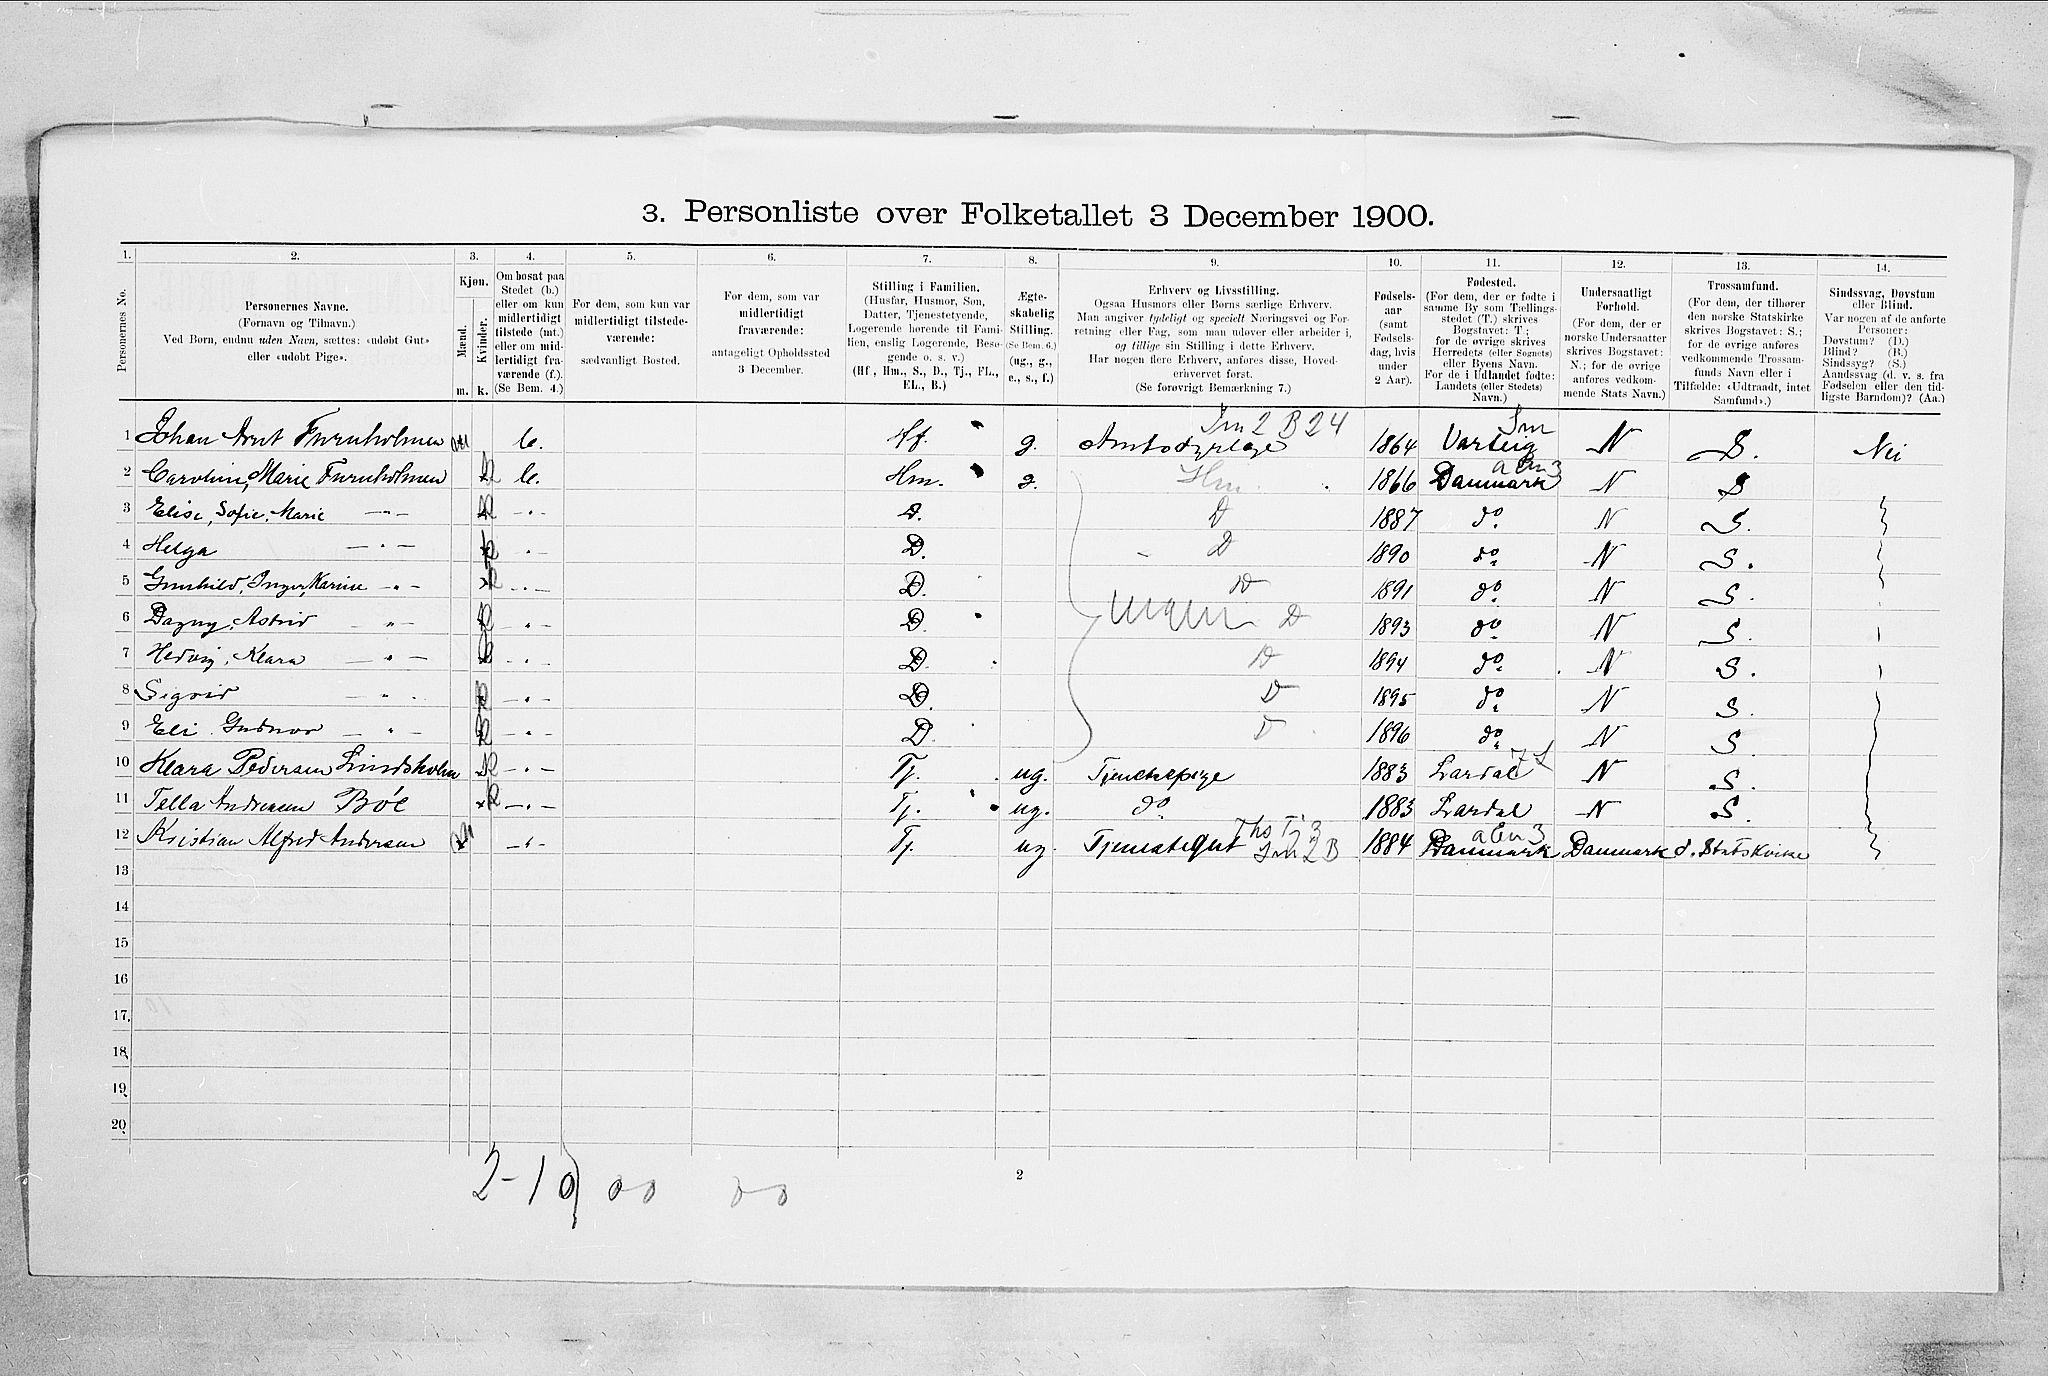 3. Personliste over Folketallet 3 December 1900.
1. 2. 3. 4. 5. 6. 7. 8. 9. 10. 11. 12. 13. 14.
Personernes No.
Personernes Navne.
(Fornavn og Tilnavn.)
Ved Børn, endnu uden Navn, sættes: «udøbt Gut»
eller «udøbt Pige».
Kjøn.
Mænd.
Kvinder.
m. k.
Om bosat paa
Stedet (b.)
eller om kun
midlertidigt
tilstede (mt.)
eller om mid-
lertidigt fra-
værende (f.).
(Se Bem. 4.)
For dem, som kun var
midlertidigt tilstede-
værende:
sædvanligt Bosted.
For dem, som var
midlertidigt
fraværende:
antageligt Opholdssted
3 December.
Stilling i Familien.
(Husfar, Husmor, Søn,
Datter, Tjenestetyende,
Logerende hørende til Fami-
lien, enslig Logerende, Besø-
gende o. s. v.)
(Hf., Hm., S., D., Tj., FL.,
EL., B.)
Ægte-
skabelig
Stilling.
(Se Bem. 6.)
(ug., g.,
e., s., f.)
Erhverv og Livsstilling.
Ogsaa Husmors eller Børns særlige Erhverv.
Man angiver tydeligt og specielt Næringsvei og For-
retning eller Fag, som man udøver eller arbeider i,
og tillige sin Stilling i dette Erhverv.
Har nogen flere Erhverv, anføres disse, Hoved-
erhvervet først.
(Se forøvrigt Bemærkning 7.)
Fødsels-
aar
(samt
Fødsels-
dag, hvis
under
2 Aar).
Fødested.
(For dem, der er fødte i
samme By som Tællings-
stedet (T.) skrives
Bogstavet: T.;
for de øvrige skrives
Herredets (eller Sognets)
eller Byens Navn.
For de i Udlandet fødte:
Landets (eller Stedets)
Navn.)
Undersaatligt
Forhold.
(For dem, der er
norske Undersaatter
skrives Bogstavet:
N.; for de øvrige
anføres vedkom-
mende Stats Navn.)
Trossamfund.
(For dem, der tilhører
den norske Statskirke
skrives Bogstavet: S.;
for de øvrige anføres
vedkommende Trossam-
funds Navn eller i
Tilfælde: «Udtraadt, intet
Samfund».)
Sindssvag, Døvstum
eller Blind.
Var nogen af de anførte
Personer:
Døvstum? (D.)
Blind? (B.)
Sindssyg? (S.)
Aandssvag (d. v. s. fra
Fødselen eller den tid-
ligste Barndom)? (Aa.)
1 Johan Arnt Furuholmen b. Hf. g. Amtsdyrlæge 1864 Varteig N S. Nei
2 Caroline, Marie Furuholmen k b. Hm. g. Hm. 1866 Danmark N S
3 Elise, Sofie, Marie — " — k - " - D. D 1887 do. N S.
4 Helga — " — k - " - D. D 1890 do. N S.
5 Gunhild, Inger, Karine — " — k - " - D. D 1891 do. N S.
6 Dagny, Astrid — " — k - " - D. D 1893 do. N S.
7 Hedvig, Klara — " — k - " - D. D 1894 do. N S.
8 Sigrid — " — k - " - D. D 1895 do. N S.
9 Eli Gudnor — " — k - " - D D 1896 do. N S.
10 Klara Pedersen Lindsholm k - " - Tj. ug. Tjenestepige 1883 Lardal N S.
11 Tella Andersen Bøe k - " - Tj. ug. do. 1883 Lardal N S.
12 Kristian Alfred Andersen - " - Tj. ug. Tjenestegut 1884 Danmark Danmark d. Statskirke
13
14
15
16
17
18
19
20
2-10 00 00
2